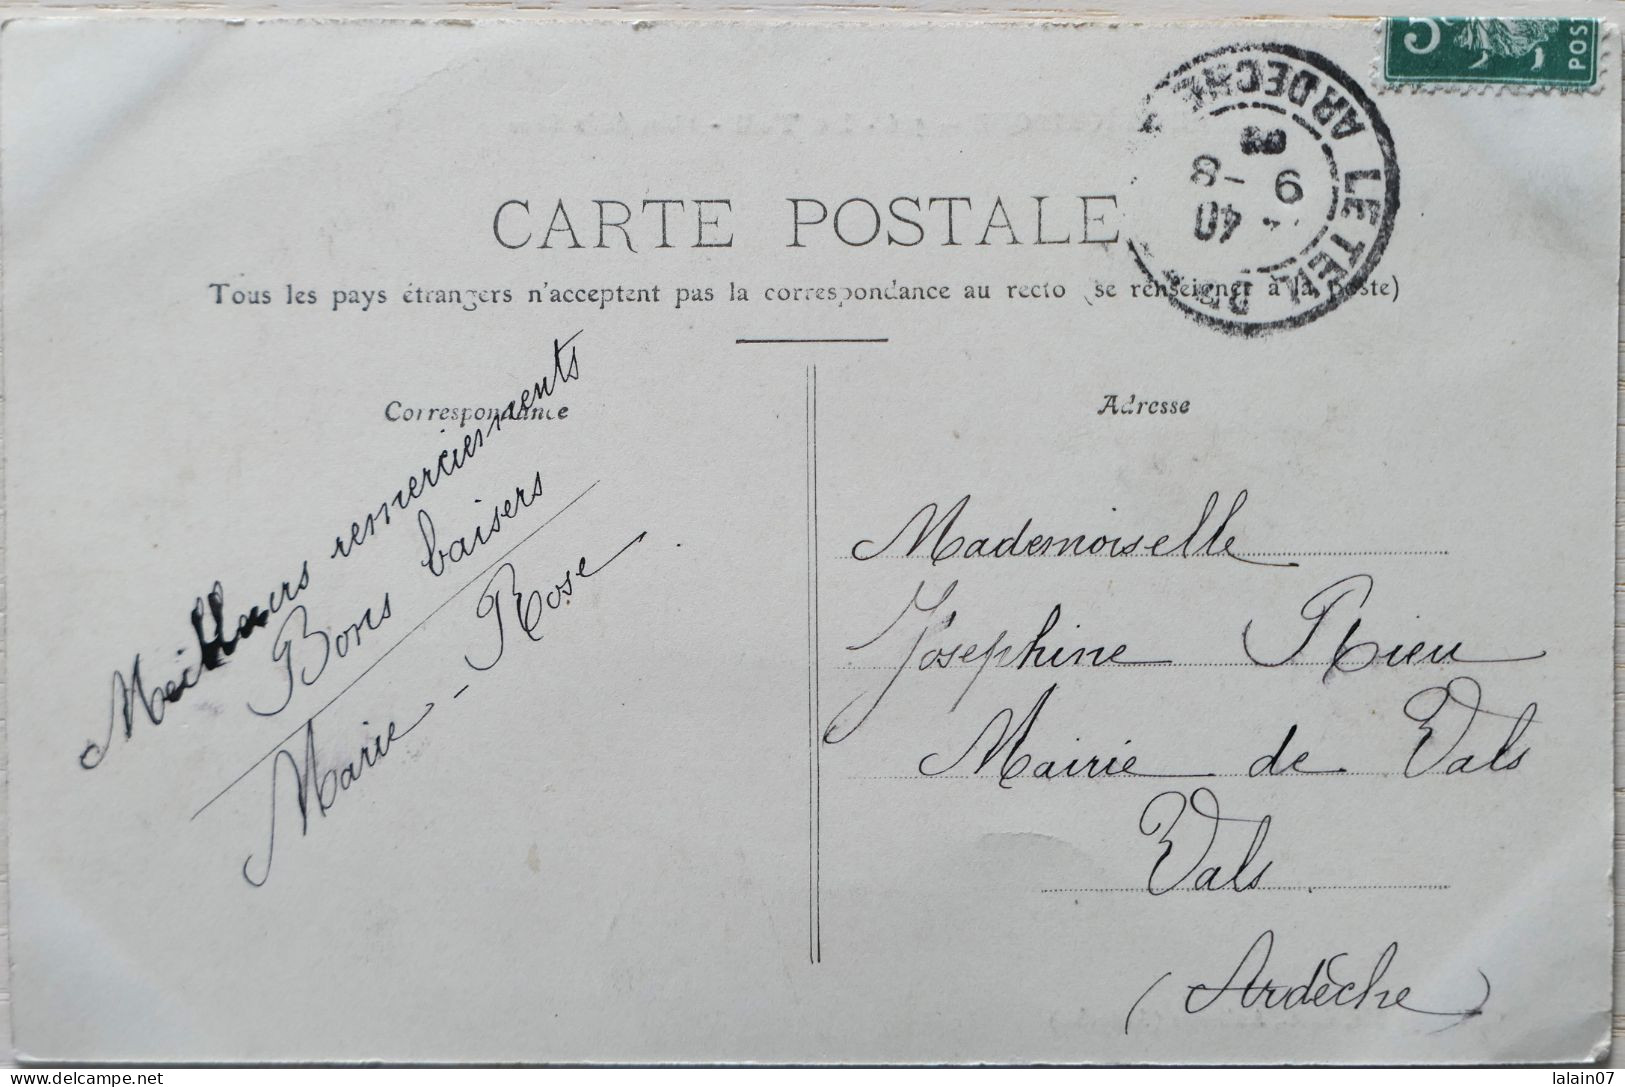 5c
POS
LE TEIL
ARDECHE
40
9 -8
CARTE POSTALE
Tous les pays étrangers n'acceptent pas la correspondance au recto (se renseigner à la poste)
Correspondance
Meilleurs remerciements
Bons baisers
Marie-Rose
Adresse
Mademoiselle
Joséphine Rieu
Mairie de Vals
Vals
(Ardèche)
lalain07